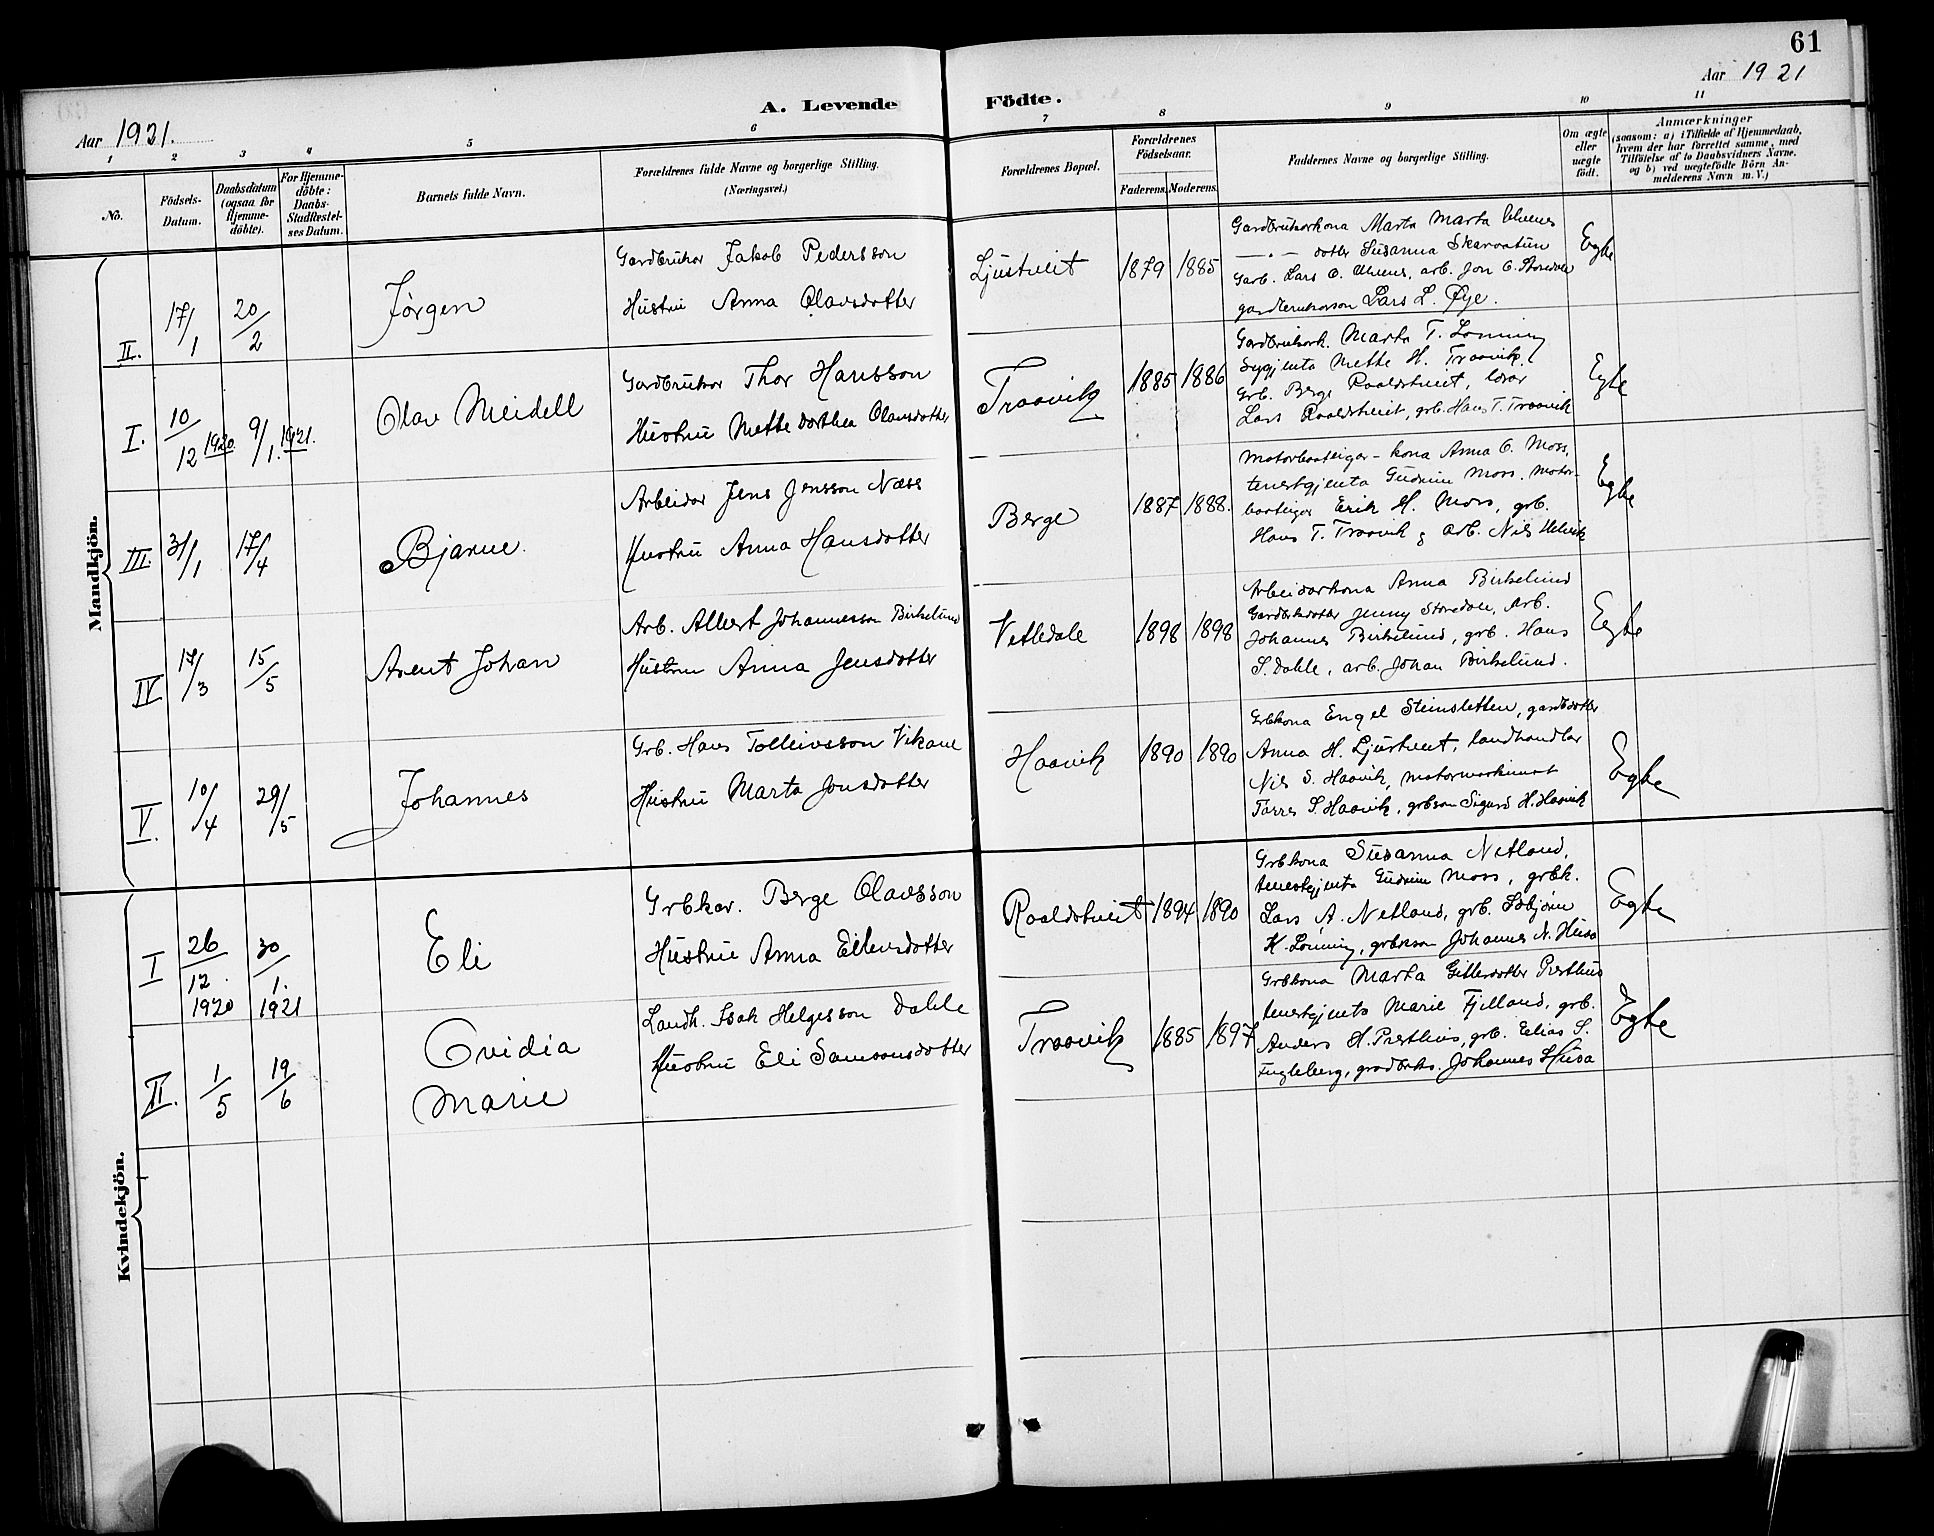 61
Aar 1921
A. Levende Födte.
Aar 1921.
1 2 3 4 5 6 7 8 9 10 11
No.
Födsels-
Datum.
Daabsdatum
(ogsaa for
Hjemme-
döbte).
For Hjemme-
döbte:
Daabs-
Stadfæstel-
ses Datum.
Barnets fulde Navn.
Forældrenes fulde Navne og borgerlige Stilling.
(Næringsvei.)
Forældrenes Bopæl.
Forældrenes
Födselsaar.
Faderens. Moderens.
Faddernes Navne og borgerlige Stilling.
Om ægte
eller
uægte
födt.
Anmærkninger
(saasom: a) i Tilfælde af Hjemmedaab,
hvem der har forrettet samme, med
Tilföielse af to Daabsvidners Navne.
og b) ved uægtefödte Börn An-
melderens Navn m. V.)
Mandkjön.
II. 17/1 20/2
Jørgen
Gardbrukar Jakob Pedersson
Hustru Anna Olavsdotter
Ljustveit 1879 1885
Gardbrukarkona Marta Marta
—„— dotter Susanna Skarvatun
Garb. Lars O. arb. Jon O. Storedale
gardbrukarson Lars L. Øye.
Egte
I. 10/12 1920. 9/1. 1921.
Olav Meidell
Gardbrukar Thor Hansson
Hustru Mette Dorthea Olavsdotter
Traavik 1885 1886
Gardbrukark. Marta T. Lønning
Sygjenta Mette H. Traavik,
Grb. Berge Raaldstveit, lærar
Lars Raaldstveit, grb. Hans T. Traavik
Egte
III. 31/1 17/4
Bjarne.
Arbeidar Jens Jensson Næss
Hustru Anna Hansdotter
Berge 1887 1888.
Motorbaateigar-kona Anna O. Moss,
tenestgjenta Gudrun Moss, motor-
baateigar Erik H. Moss, grb.
Hans T. Traavik & arb. Nils Helvik
Egte
IV 17/3 15/5
Arent Johan
Arb. Albert Johannesson Birkelund
Hustru Anna Jensdotter
Vetledale 1898 1898
Arbeidarkona Anna Birkelund
Gardbrkdotter Jenny Storedale, Arb.
Johannes Birkelund, grb. Hans
S. Dahle, arb. Johan Birkelund.
Egte
V. 10/4 29/5
Johannes
Grb. Hans Tolleivsson Vikane
Hustru Marta Jonsdotter
Haavik 1890 1890
Grbkona Engel Steinsletten, gardbdotter
Anna H. Ljustveit, landhandlar
Nils S. Haavik, motormaskinist
Torres S. Haavik, grbson Sigurd H. Haavik
Egte
Kvindekjön.
I 26/12. 1920 30/1. 1921
Eli
Grbkar. Berge Olavsson
Hustru Anna Eilevsdotter
Raaldstveit 1894 1890
Grbkona Susanna Netland,
tenestgjenta Gudrun Moss, grbk.
Lars A. Netland, grb. Asbjørn
K. Lønning, grbson Johannes N. Husa
Egte
II. 1/5 19/6
Ovidia
Marie
Landh. Isak Helgesson Dahle
Hustru Eli Samsonsdotter
Traavik 1885 1897
Grbkona Marta Gittersdotter Presthus
tenestgjenta Marie Fjelland, grb.
Anders H. Presthus, grb. Elias S.
Fugleberg, gradbrks. Johannes Husa
Egte